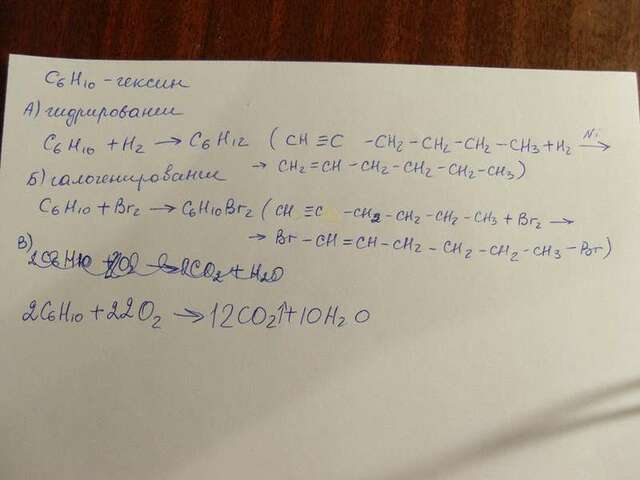 C6H10 - гексин
А) гидрировании
C6H10 + H2 → C6H12 ( CH ≡ C - CH2 - CH2 - CH2 - CH3 + H2 Ni →
→ CH2 = CH - CH2 - CH2 - CH2 - CH3)
Б) галогенировании
C6H10 + Br2 → C6H10Br2 ( CH ≡ C - CH2 - CH2 - CH2 - CH3 + Br2 →
→ Br - CH = CH - CH2 - CH2 - CH2 - CH3 - Br)
В)
2C6H10 + 2O2 → 2CO2 + H2O
2C6H10 + 22O2 → 12CO2↑ + 10H2O